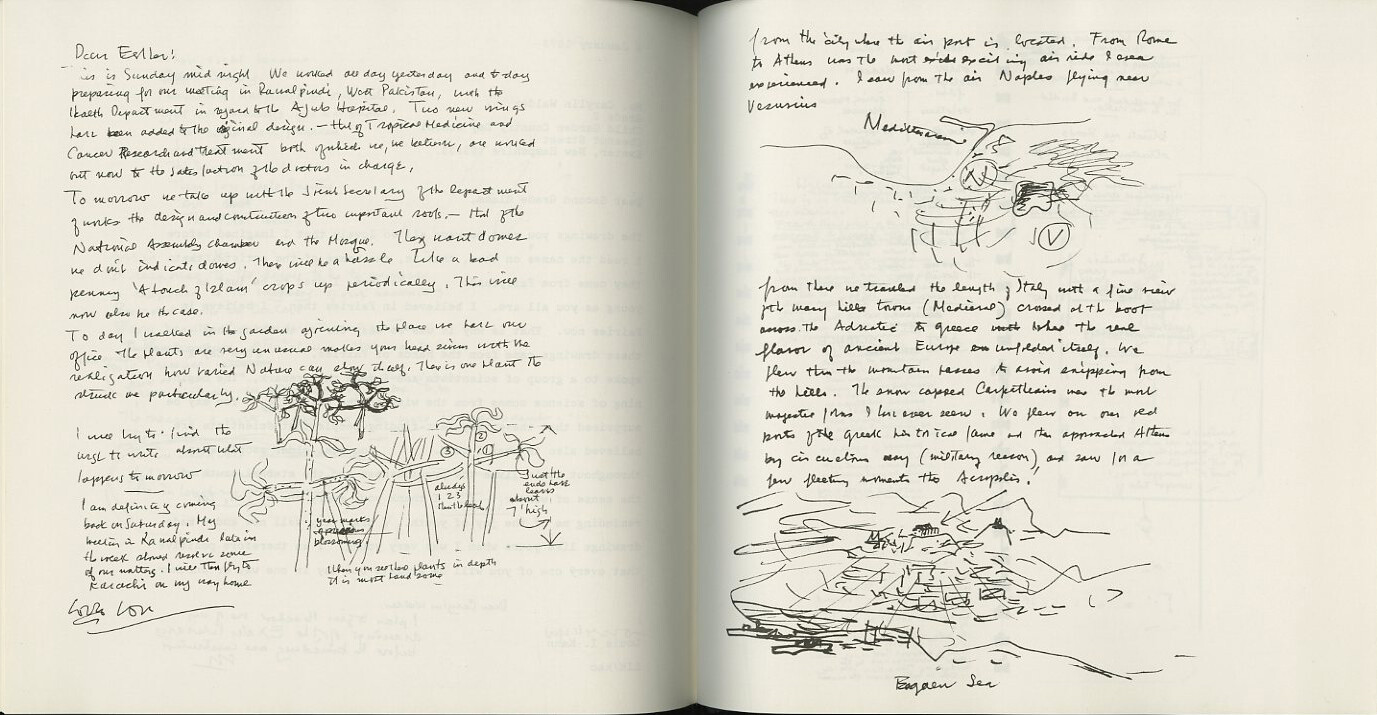 Dear Esther!
This is Sunday mid night We worked all day yesterday and to day
preparing for our meeting in Rawalpindi, West Pakistan, with the
Health Department in regard to the Ajub Hospital. Two new wings
have been added to the original design. — that of Tropical Medicine and
Cancer Research and treatment both of which we, we believe, are worked
out now to the satisfaction of the doctors in charge.
To morrow we take up with the Secretary of the Department
of works the design and construction of two important roofs. — that of the
National Assembly chamber and the Mosque. They want domes
we don't indicate domes. There will be a hassle Like a bad
penny 'A touch of Islam' crops up periodically. This will
now also be the case.
To day I walked in the garden the place we have our
office The plants are very unusual makes your head swim with the
realization how varied Nature can show itself. There is one plant the
struck me particularly.
I will try to find the
to write about what
happens to morrow
I am definitely coming
back on Saturday. My
meeting in Rawalpindi late in
the week should resolve some
of our matters. I will then fly to
Karachi on my way home
always
1 2 3
②
③
①
Just the
ends have
leaves
about
7' high
year marks
of previous
blossoming
When you see two plants in depth
it is most hand some
Love Lou
from the city where the air port is located. From Rome
to Athens was the most exciting air ride I ever
experienced. I saw from the air Naples flying near
Vesuvius
Mediterranean
V
from there we traveled the length of Italy with a fine view
of the many hills towns (Medieval) crossed at the boot
across the Adriatic to greece where the real
flavor of ancient Europe unfolded itself. We
flew thru the mountain passes to avoid snipping from
the hills. The snow capped Carpetheans was the most
majestic forms I have ever seen. We flew on over
ports of the Greek historical fame and then approached Athens
by circuitous way (military reason) and saw for a
few fleeting moments the Acropolis!
Eagaen Sea